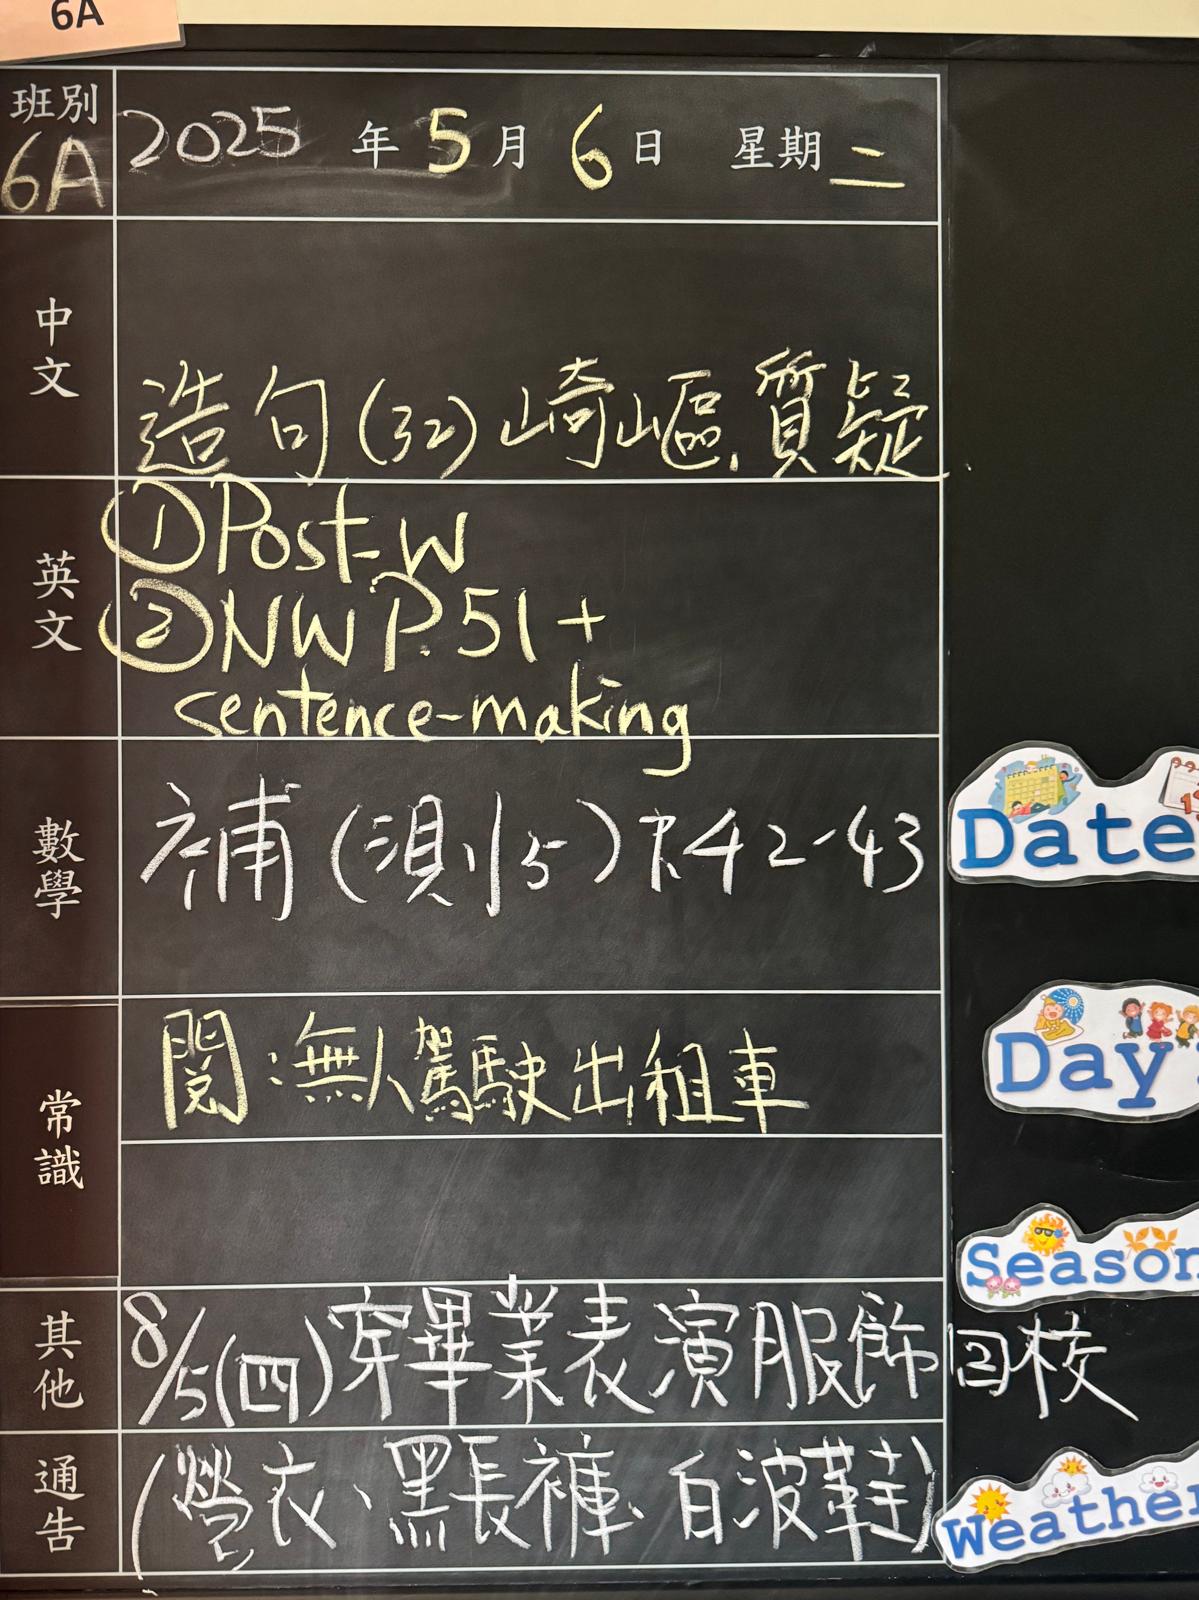 6A
班別
6A
2025 年 5 月 6 日 星期二
中文
造句(32)崎嶇,質疑
英文
①Post-W
②NW P.51+
sentence-making
數學
補(測5)P.42-43
常識
閱:無人駕駛出租車
其他
8/5(四)穿畢業表演服飾回校
通告
(營衣、黑長褲、白波鞋)
Date
Day
Season
Weather